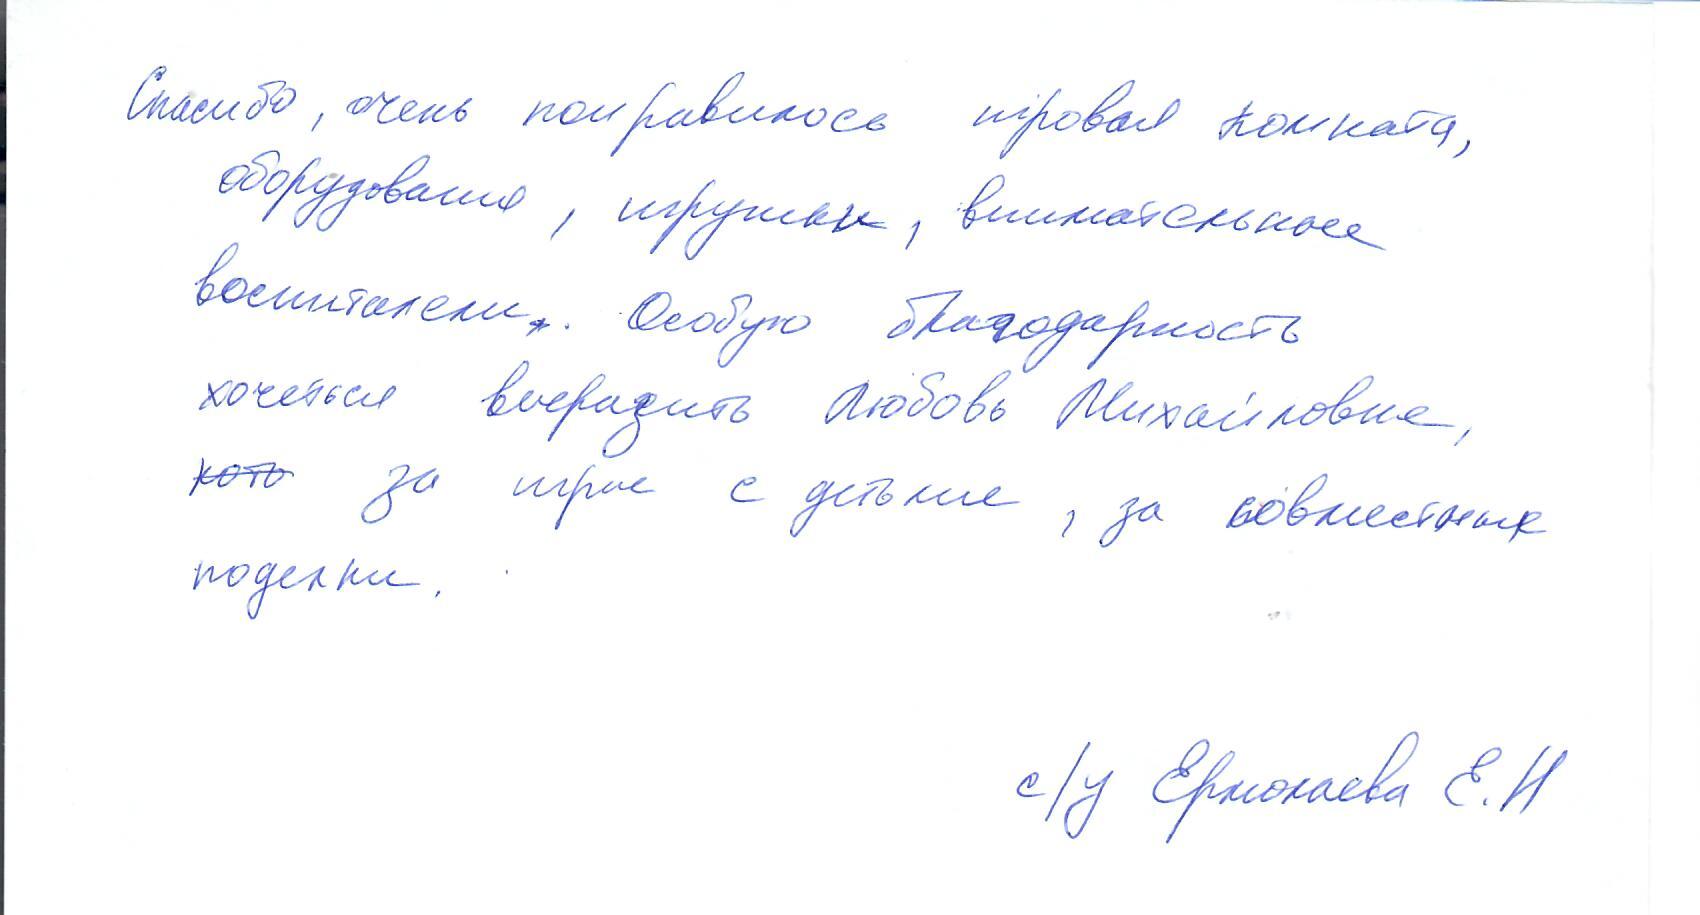 Спасибо, очень понравилось игровая комната,
оборудование, игрушки, внимательные
воспитатели. Особую благодарность
хочеться выразить Любовь Михайловне,
за игры с детьми, за совместных
поделки.
с/у Ермолаева Е.Н